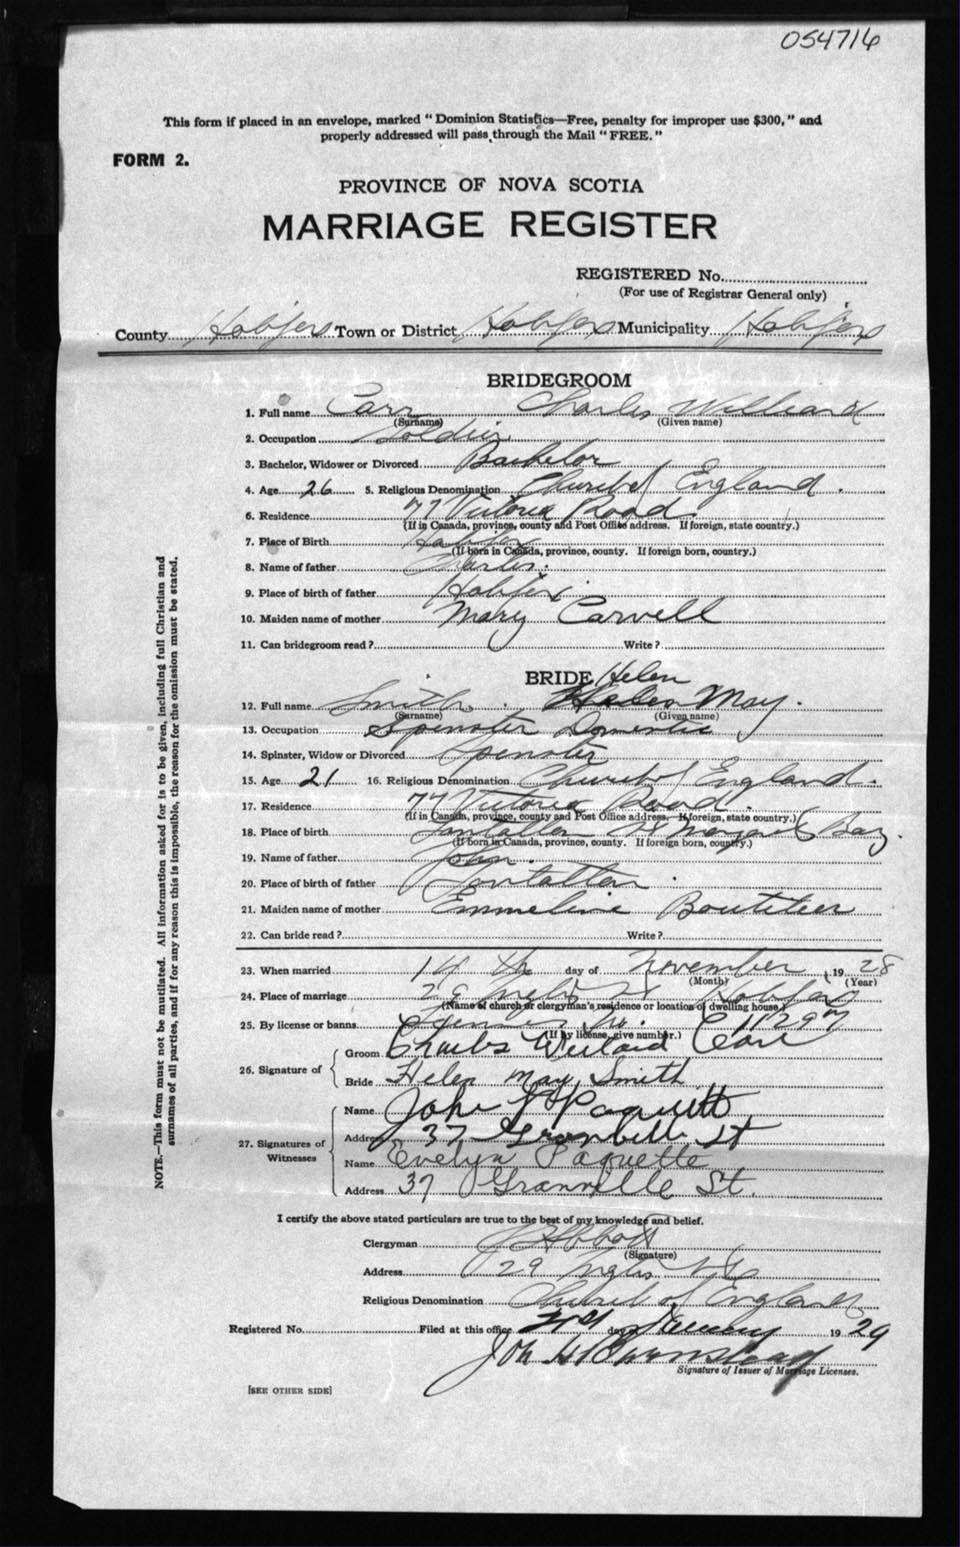 054716
This form if placed in an envelope, marked "Dominion Statistics—Free, penalty for improper use $300," and
properly addressed will pass through the Mail "FREE."
FORM 2.
PROVINCE OF NOVA SCOTIA
MARRIAGE REGISTER
REGISTERED No.
(For use of Registrar General only)
County Halifax Town or District Halifax Municipality Halifax
BRIDEGROOM
1. Full name Carr Charles Willard
(Surname) (Given name)
2. Occupation Soldier
3. Bachelor, Widower or Divorced Bachelor
4. Age 26 5. Religious Denomination Church of England.
6. Residence 77 Victoria Road.
(If in Canada, province, county and Post Office address. If foreign, state country.)
7. Place of Birth Halifax
(If born in Canada, province, county. If foreign born, country.)
8. Name of father Charles.
9. Place of birth of father Halifax
10. Maiden name of mother Mary Carvell
11. Can bridegroom read? Write?
BRIDE Helen
12. Full name Smith. May.
(Surname) (Given name)
13. Occupation Spenster Domestic
14. Spinster, Widow or Divorced Spenster
15. Age 21 16. Religious Denomination Church of England.
17. Residence 77 Victoria Road.
(If in Canada, province, county and Post Office address. If foreign, state country.)
18. Place of birth Tantallon St Margarets Bay.
(If born in Canada, province, county. If foreign born, country.)
19. Name of father John.
20. Place of birth of father Tantallon.
21. Maiden name of mother Emmeline Boutilier
22. Can bride read? Write?
23. When married 14 th day of November, 1928
(Month) (Year)
24. Place of marriage 29 Inglis St Halifax
(Name of church or clergyman's residence or location of dwelling house.)
25. By license or banns
(If by license, give number.)
26. Signature of
Groom Charles Willard Carr
Bride Helen May Smith
27. Signatures of Witnesses
Name John Paquette
Address 37 Granville St
Name Evelyn Paquette
Address 37 Granville St.
I certify the above stated particulars are true to the best of my knowledge and belief.
Clergyman
(Signature)
Address 29 Inglis St
Religious Denomination Church of England
Registered No. Filed at this office day of January 1929
Signature of Issuer of Marriage Licenses.
[SEE OTHER SIDE]
NOTE.—This form must not be mutilated. All information asked for is to be given, including full Christian and
surnames of all parties, and if for any reason this is impossible, the reason for the omission must be stated.